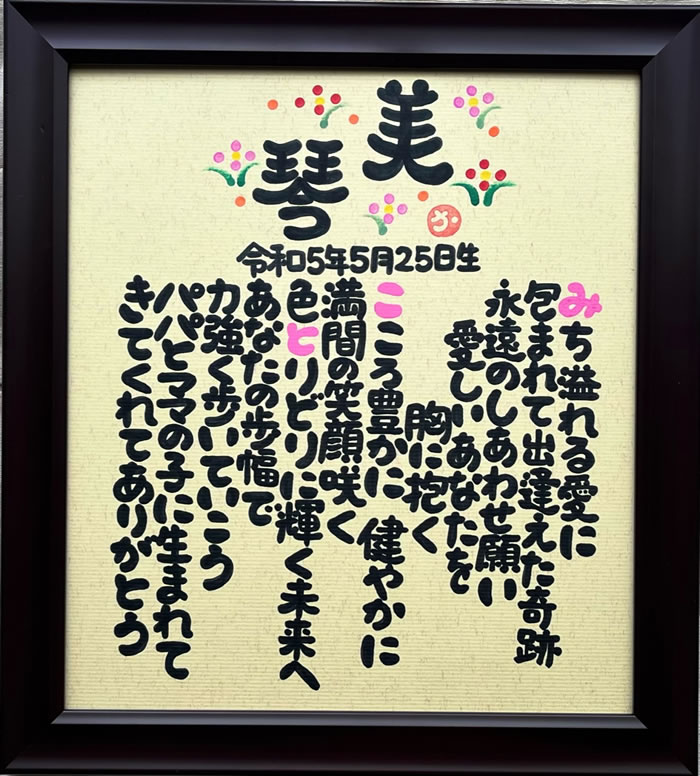 美琴
か
令和5年5月25日生
みち溢れる愛に
包まれて出逢えた奇跡
永遠のしあわせ願い
愛しいあなたを
胸に抱く
こころ豊かに 健やかに
満開の笑顔咲く
色とりどりに輝く未来へ
あなたの歩幅で
力強く歩いていこう
パパとママの子に生まれて
きてくれてありがとう